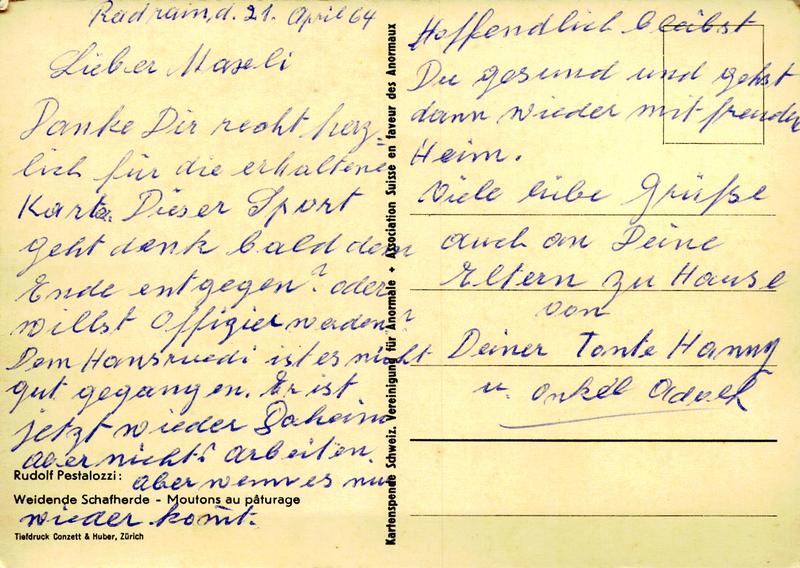 Radrain d. 21. April 64
Lieber Maseli
Danke Dir recht herz-
lich für die erhaltene
Karte. Dieser Sport
geht denk bald dem
Ende entgegen? oder
willst Offizier werden?
Dem Hansruedi ist es nicht
gut gegangen. Er ist
jetzt wieder Daheim
aber nichts arbeiten.
aber wenn es nur
wieder komt.
Rudolf Pestalozzi:
Weidende Schafherde - Moutons au pâturage
Tiefdruck Conzett & Huber, Zürich
Kartenspende Schweiz. Vereinigung für Anormale + Association Suisse en faveur des Anormaux
Hoffendlich bleibst
Du gesund und gehst
dann wieder mit freuden
Heim.
Viele liebe Grüße
auch an Deine
Eltern zu Hause
von
Deiner Tante Hanny
u. Onkel Adolf